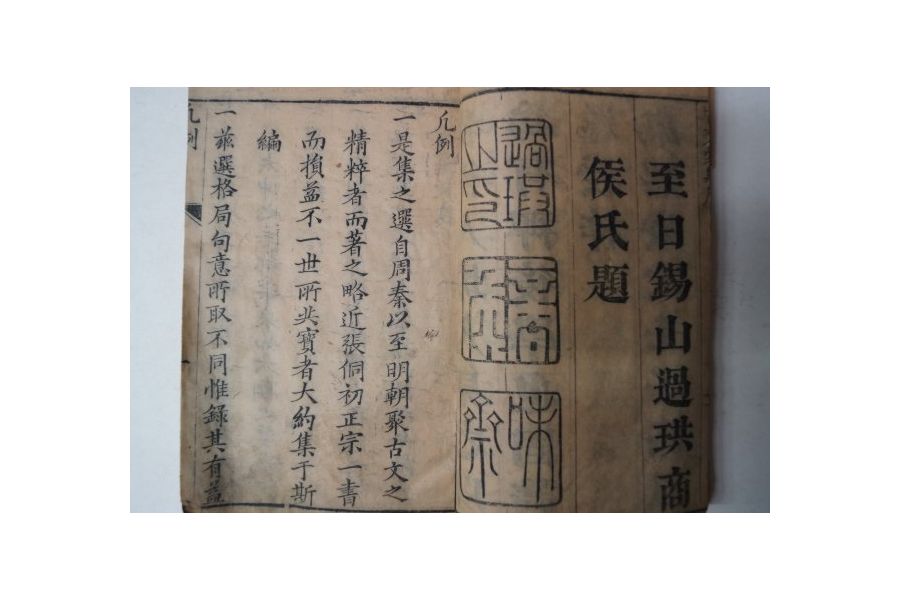 至日錫山過珙商
侯氏題
過珙之印
商侯
味斎
凡例
一是集之選自周秦以至明朝聚古文之
精粹者而著之略近張侗初正宗一書
而損益不一世所共寶者大約集于斯
編
一兹選格局句意所取不同惟錄其有益
凡例